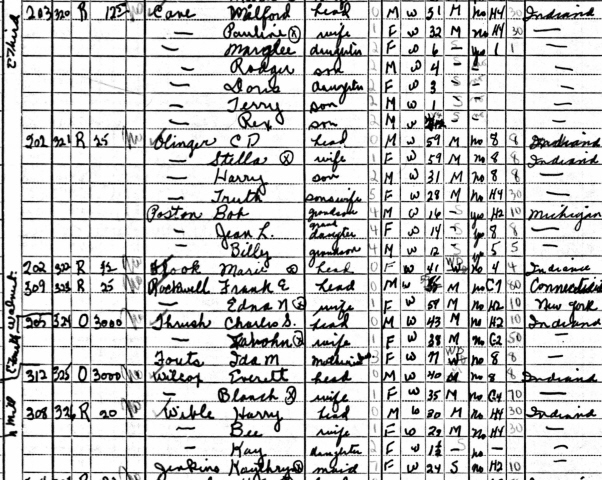 203 320 R 12 Cane Walford head 0 M W 51 M no H4 30 Indiana
— Pauline ⓧ wife 1 F W 32 M no H4 30 —
— daughter 2 F W 6 — yes 1 1 —
— Rodger son 2 M W 4 — — —
— Doris daughter 2 F W 3 — —
— Terry son 2 M W 1 — —
— Rex son 2 M W —
202 321 R 25 Olinger C D head 0 M W 59 M no 8 8 Indiana
— Stella ⓧ wife 1 F W 59 M no 8 8 Indiana
— Harry son 2 M W 31 M no 8 8 —
— Truth sonswife 5 F W 28 M no H4 30 —
Poston Bob grandson 4 M W 16 S yes H2 10 Michigan
— Jean L. grand daughter 4 F W 14 S yes 8 8 —
— Billy grandson 4 M W 12 S yes 5 5 —
202 322 R 12 Hook Marie ⓧ head 0 F W 41 Wd no 4 4 Indiana
309 323 R 25 Rockwell Frank E head 0 M W M no C7 60 Connecticut
— Edna N ⓧ wife 1 F W 57 M no H2 10 New York
305 324 O 3000 Thrush Charles S. head 0 M W 43 M no H2 10 Indiana
— ⓧ wife 1 F W 38 M no C2 50 —
Fouts Ida M F W 77 Wd no 8 8 —
312 325 O 3000 Wilcox Everett head 0 M W 40 M no 8 8 Indiana
— Blanch ⓧ wife 1 F W 35 M no C4 70 —
308 326 R 20 Wible Harry head 0 M W 30 M no H4 30 Indiana
— Bee wife 1 F W 29 M no H4 30 —
— Kay daughter 2 F W 1 S no — —
Jenkins Kathryn ⓧ maid 7 F W 24 S no H2 10 —
E Third
Walnut
Mill